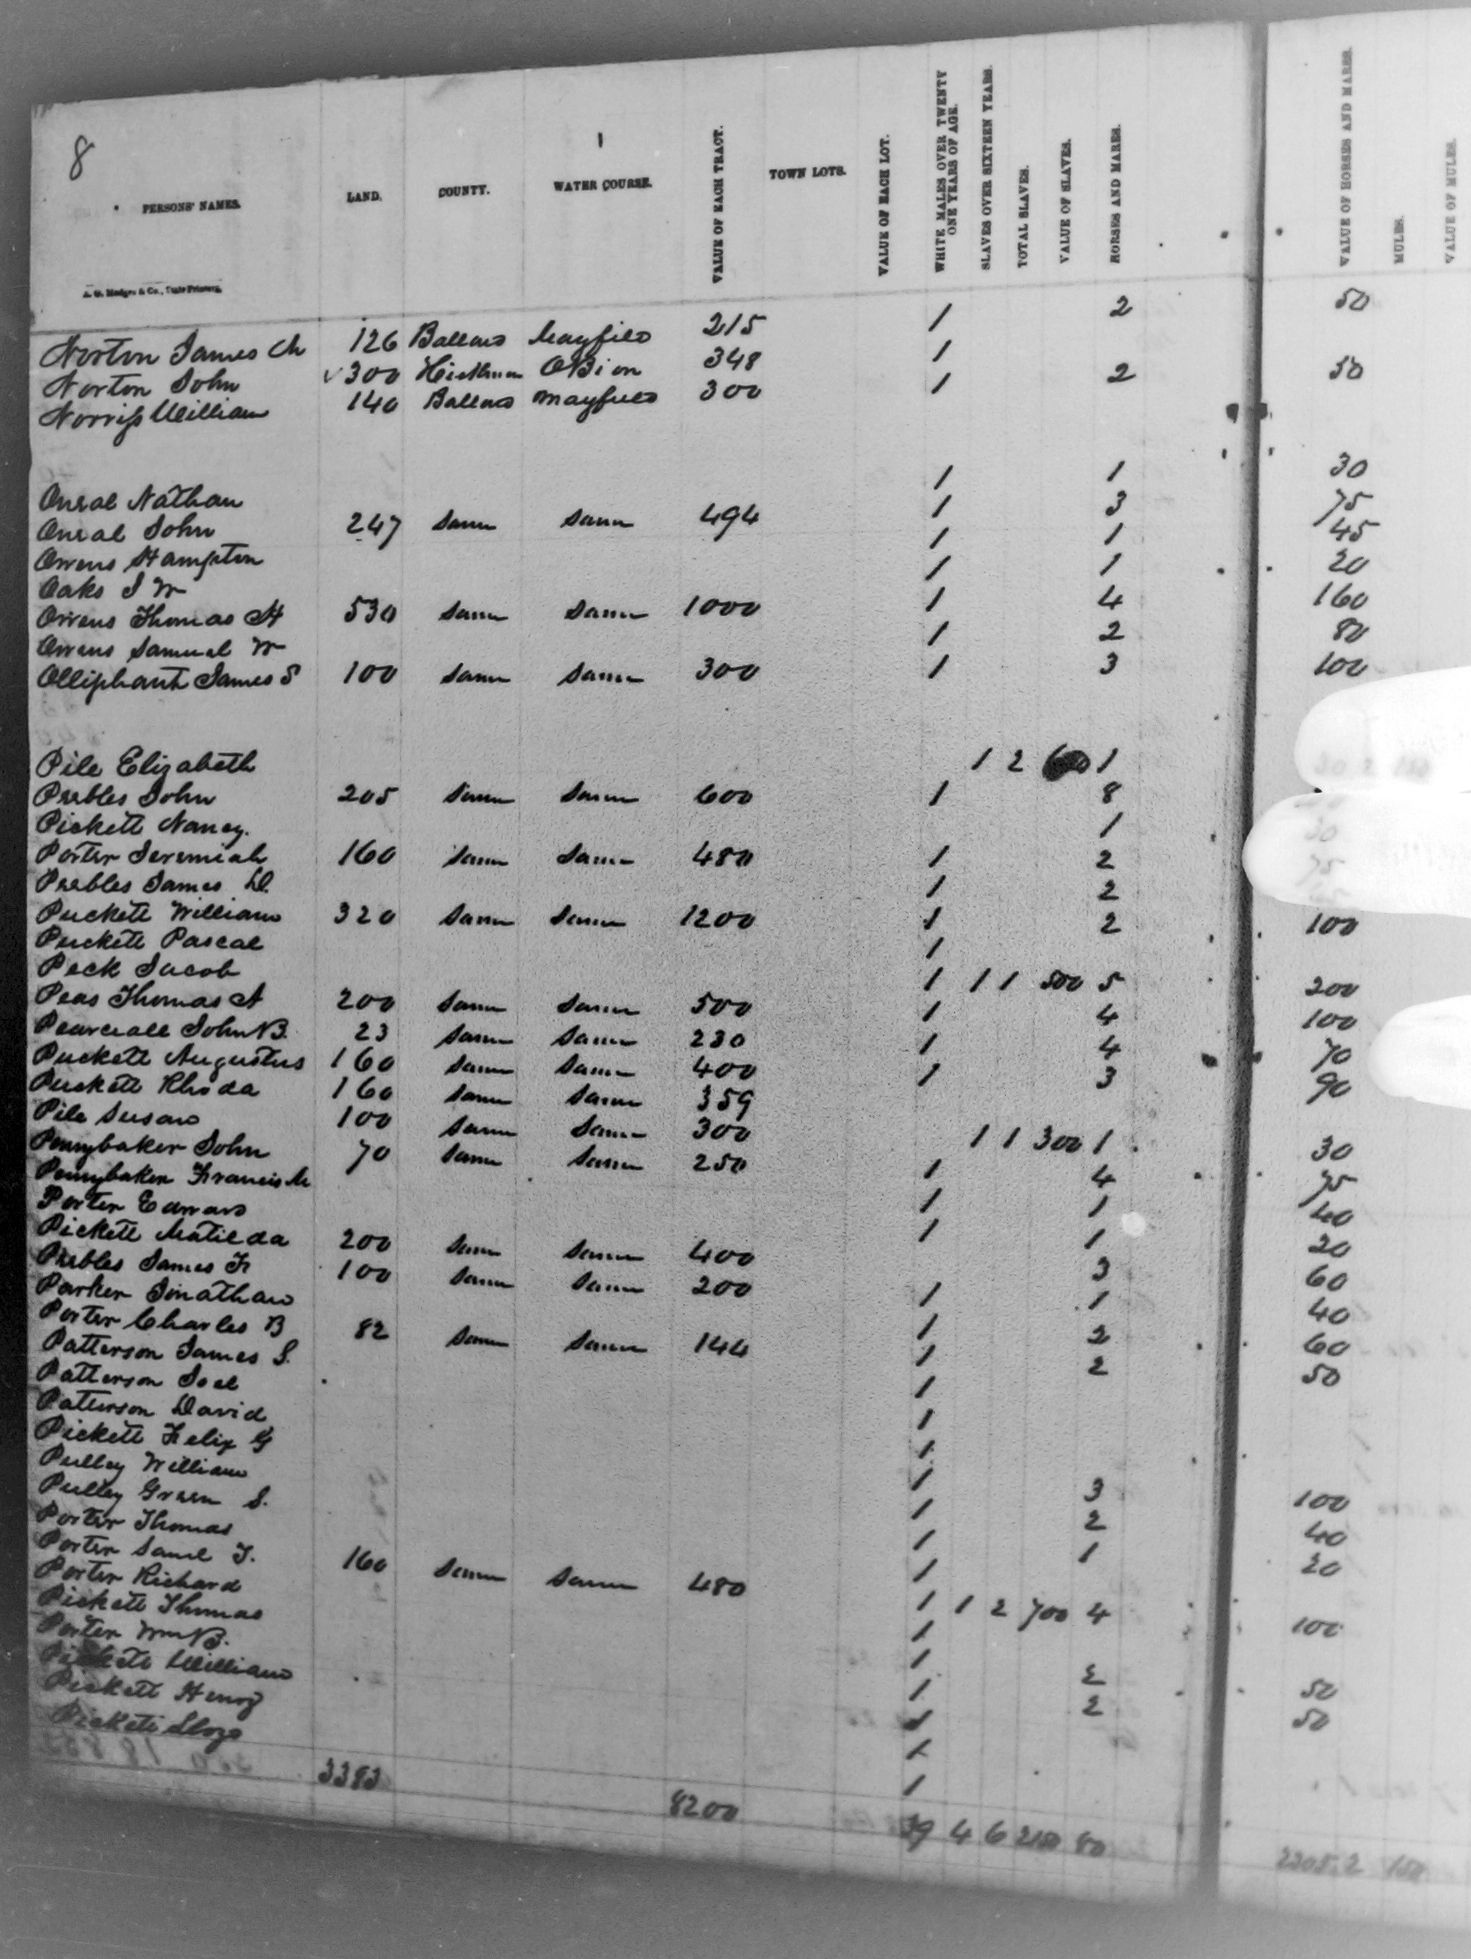 8
PERSONS' NAMES. LAND. COUNTY. WATER COURSE. VALUE OF EACH TRACT. TOWN LOTS. VALUE OF EACH LOT. WHITE MALES OVER TWENTY ONE YEARS OF AGE. SLAVES OVER SIXTEEN YEARS. TOTAL SLAVES. VALUE OF SLAVES. HORSES AND MARES. VALUE OF HORSES AND MARES. MULES. VALUE OF MULES.
A. G. Hodges & Co., State Printers.
Norton James M 126 Ballard Mayfield 215 1 2 50
Norton John 300 Hickman OBion 348 1
Norriss William 140 Ballard Mayfield 300 1 2 50
Nathan 1 1 30
John 247 Same Same 494 1 3 75
Owens Hampton 1 1 45
Oaks J W 1 1 20
Owens Thomas H 530 Same Same 1000 1 4 160
Owens Samuel W 1 2 80
Olliphant James S 100 Same Same 300 1 3 100
Pile Elizabeth 1 2 1
Peebles John 205 Same Same 600 1 8
Pickett Nancy. 1 30
Porter Jeremiah 160 Same Same 480 1 2 75
Peebles James D. 1 2
Puckett William 320 Same Same 1200 1 2 100
Puckett Pascal 1
Peck Jacob 1 1 1 500 5 200
Peas Thomas A 200 Same Same 500 1 4 100
John B. 23 Same Same 230 1 4 70
Puckett Augustus 160 Same Same 400 1 3 90
Puckett Rhoda 160 Same Same 359
Pile Susan 100 Same Same 300 1 1 300 1 30
Pennybaker John 70 Same Same 250 1 4 75
Pennybaker Francis M 1 1 40
Porter Edward 1 1 20
Pickett Matilda 200 Same Same 400 3 60
Peebles James Jr 100 Same Same 200 1 1 40
Parker Jonathan 1 2 60
Porter Charles B 82 Same Same 144 1 2 50
Patterson James S. 1
Patterson Joel 1
Patterson David 1
Pickett Felix G 1
Pulley William 1 3 100
Pulley Green S. 1 2 40
Porter Thomas 1 1 20
Porter Saml T. 1
Porter Richard 160 Same Same 480 1 1 2 700 4 100
Pickett Thomas 1
Porter Wm B. 1 2 50
Pickett William 1 2 50
Pickett Henry 1
Pickett 1
3383 8200 39 4 6 80